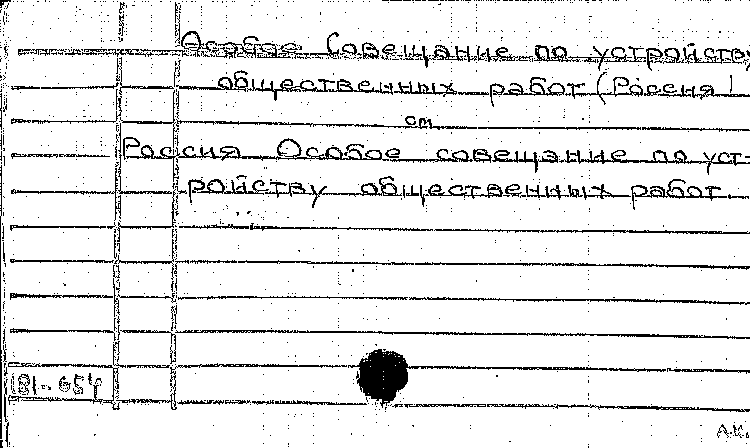 Особое Совещание по устройству
общественных работ (Россия)
см.
Россия. Особое совещание по уст-
ройству общественных работ.
181-654
А.К.